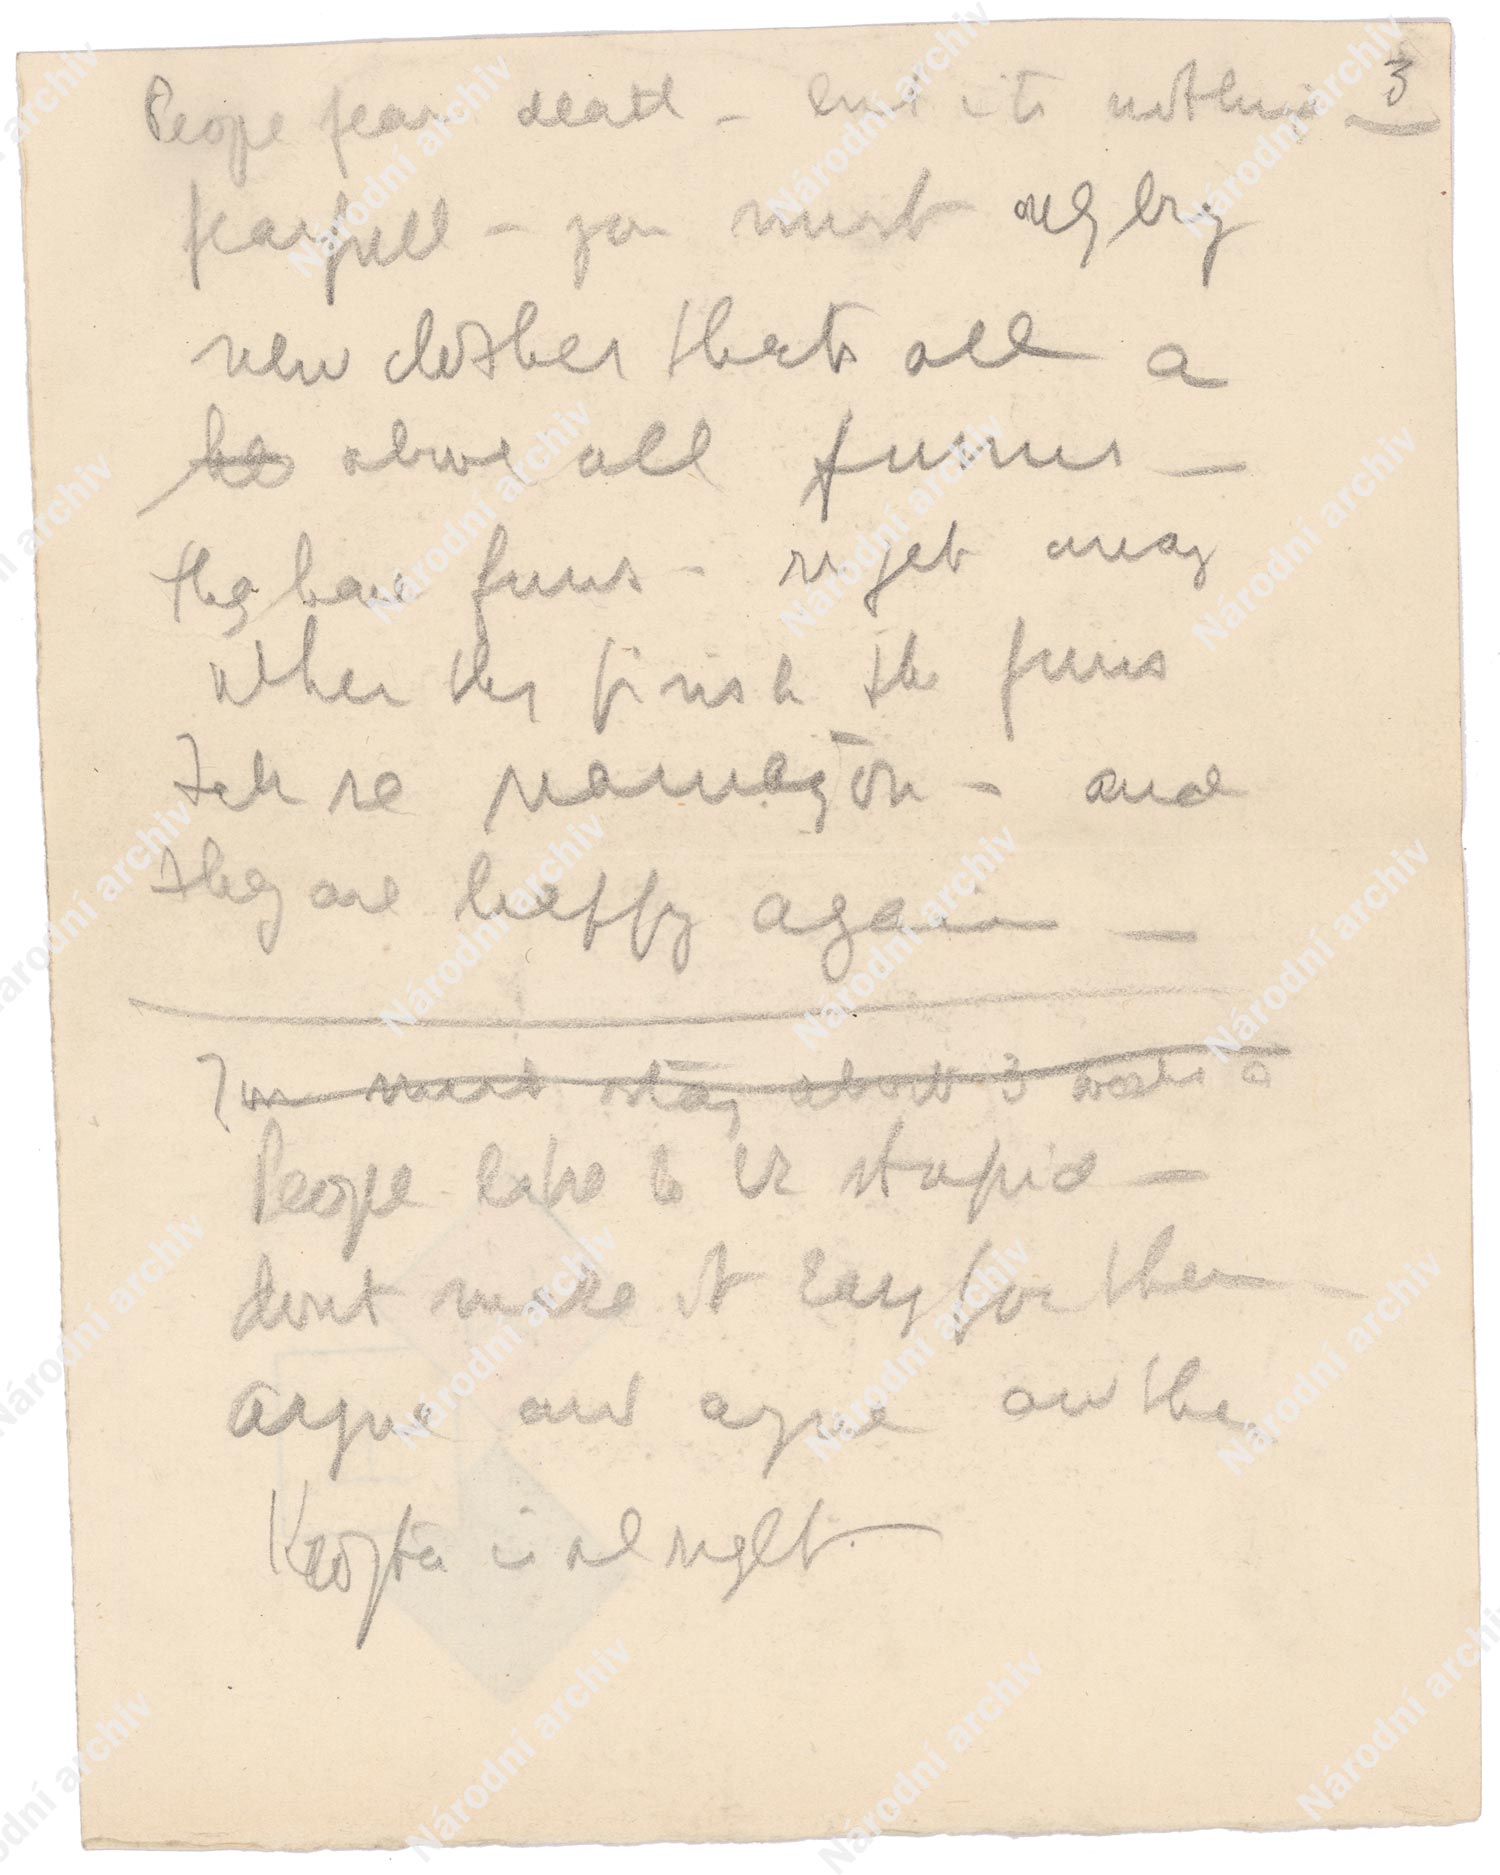 3
People fear death – but its nothing
fearfull – you must only buy
new clothes thats all a
above all furnis –
they have furns – right away
when they finish the furns
– and
they are happy again –
You must stay about 3 weeks a
People like to be stupid –
dont make it easy for them –
argue and argue and the
Kropta is al right.